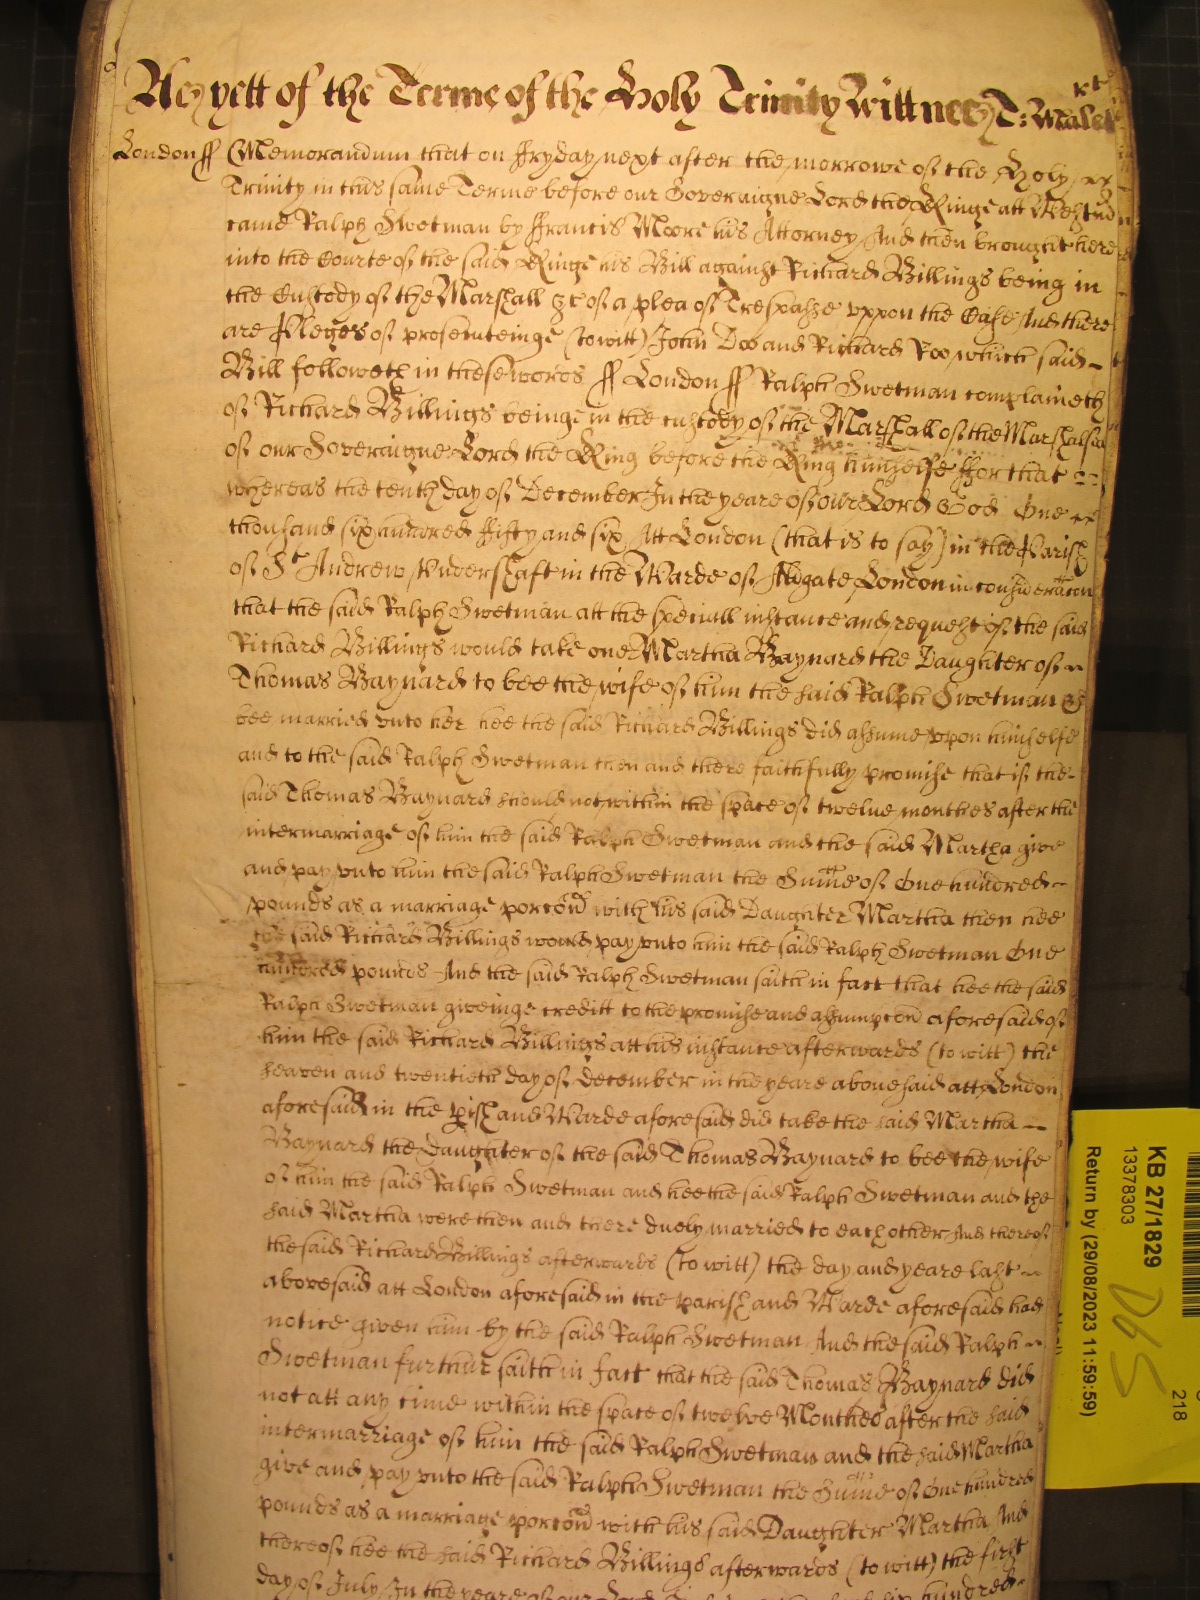 As yett of the Terme of the Holy Trinity Wittnes T: Malet
London ss Memorandum that on ffryday next after the morrowe of the Holy
Trinity in this same Terme before our Soveraigne Lord the Kinge att Westm
came Ralph Swetman by ffrancis Moore his Attorney And then brought here
into the Courte of the said Kinge his Bill against Richard Billings being in
the Custody of the Marshall &c of a plea of Trespasse vppon the Case And there
are Pleges of prosecuteinge (to witt) John Doo and Richard Roo, which said
Bill followeth in these words ss London ss Ralph Swetman complaineth
of Richard Billings beinge in the custody of the Marshall of the Marshalsea
of our Soveraigne Lord the King before the King himselfe ffor that
whereas the tenth day of December In the yeare of our Lord God One
thousand six hundred ffifty and six Att London (that is to say) in the Parish
of St Andrew Vndershaft in the Warde of Aldgate London in consideracon
that the said Ralph Swetman att the speciall instance and request of the said
Richard Billings would take one Martha Baynard the Daughter of
Thomas Baynard to bee the wife of him the said Ralph Swetman &
bee married vnto her hee the said Richard Billings did assume vpon himselfe
and to the said Ralph Swetman then and there faithfully promise that if the
said Thomas Baynard should not within the space of twelue monthes after the
intermarriage of him the said Ralph Swetman and the said Martha give
and pay vnto him the said Ralph Swetman the Summe of One hundred
pounds as a marriage porcon with his said Daughter Martha then hee
the said Richard Billings would pay vnto him the said Ralph Swetman One
hundred pounds And the said Ralph Swetman saith in fact that hee the said
Ralph Swetman giveinge creditt to the promise and assumpcon aforesaid of
him the said Richard Billings att his instance afterwards (to witt) the
seaven and twentieth day of December in the yeare abouesaid att London
aforesaid in the pish and Warde aforesaid did take the said Martha
Baynard the Daughter of the said Thomas Baynard to bee the wife
of him the said Ralph Swetman and hee the said Ralph Swetman and the
said Martha were then and there duely married to each other And thereof
the said Richard Billings afterwards (to witt) the day and yeare last
abovesaid att London aforesaid in the parish and Warde aforesaid had
notice given him by the said Ralph Swetman And the said Ralph
Swetman further saith in fact that the said Thomas Baynard did
not att any time within the space of twelve Monthes after the said
intermarriage of him the said Ralph Swetman and the said Martha
give and pay vnto the said Ralph Swetman the Summe of One hundred
pounds as a marriage porcon with his said Daughter Martha And
thereof hee the said Richard Billings afterwards (to witt) the first
day of July In the yeare of our Lord six hundred
KB 27/1829
13378303
Return by (29/08/2023 11:59:59)
D6S
218